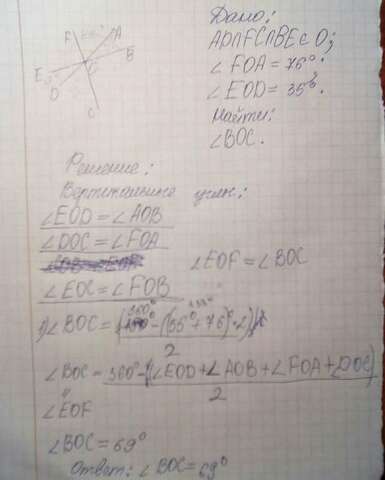 F
A
B
E
D
C
Дано:
AD∩FC∩BE в O;
∠FOA = 76°;
∠EOD = 35°.
Найти:
∠BOC.
Решение:
Вертикальные углы:
∠EOD = ∠AOB
∠DOC = ∠FOA
∠EOF = ∠BOC
∠EOC = ∠FOB
∠BOC = (360° - ((35° + 76)°·2))
2
∠BOC = 360° - (∠EOD + ∠AOB + ∠FOA + ∠DOC)
2
∠EOF
∠BOC = 69°
Ответ: ∠BOC = 69°